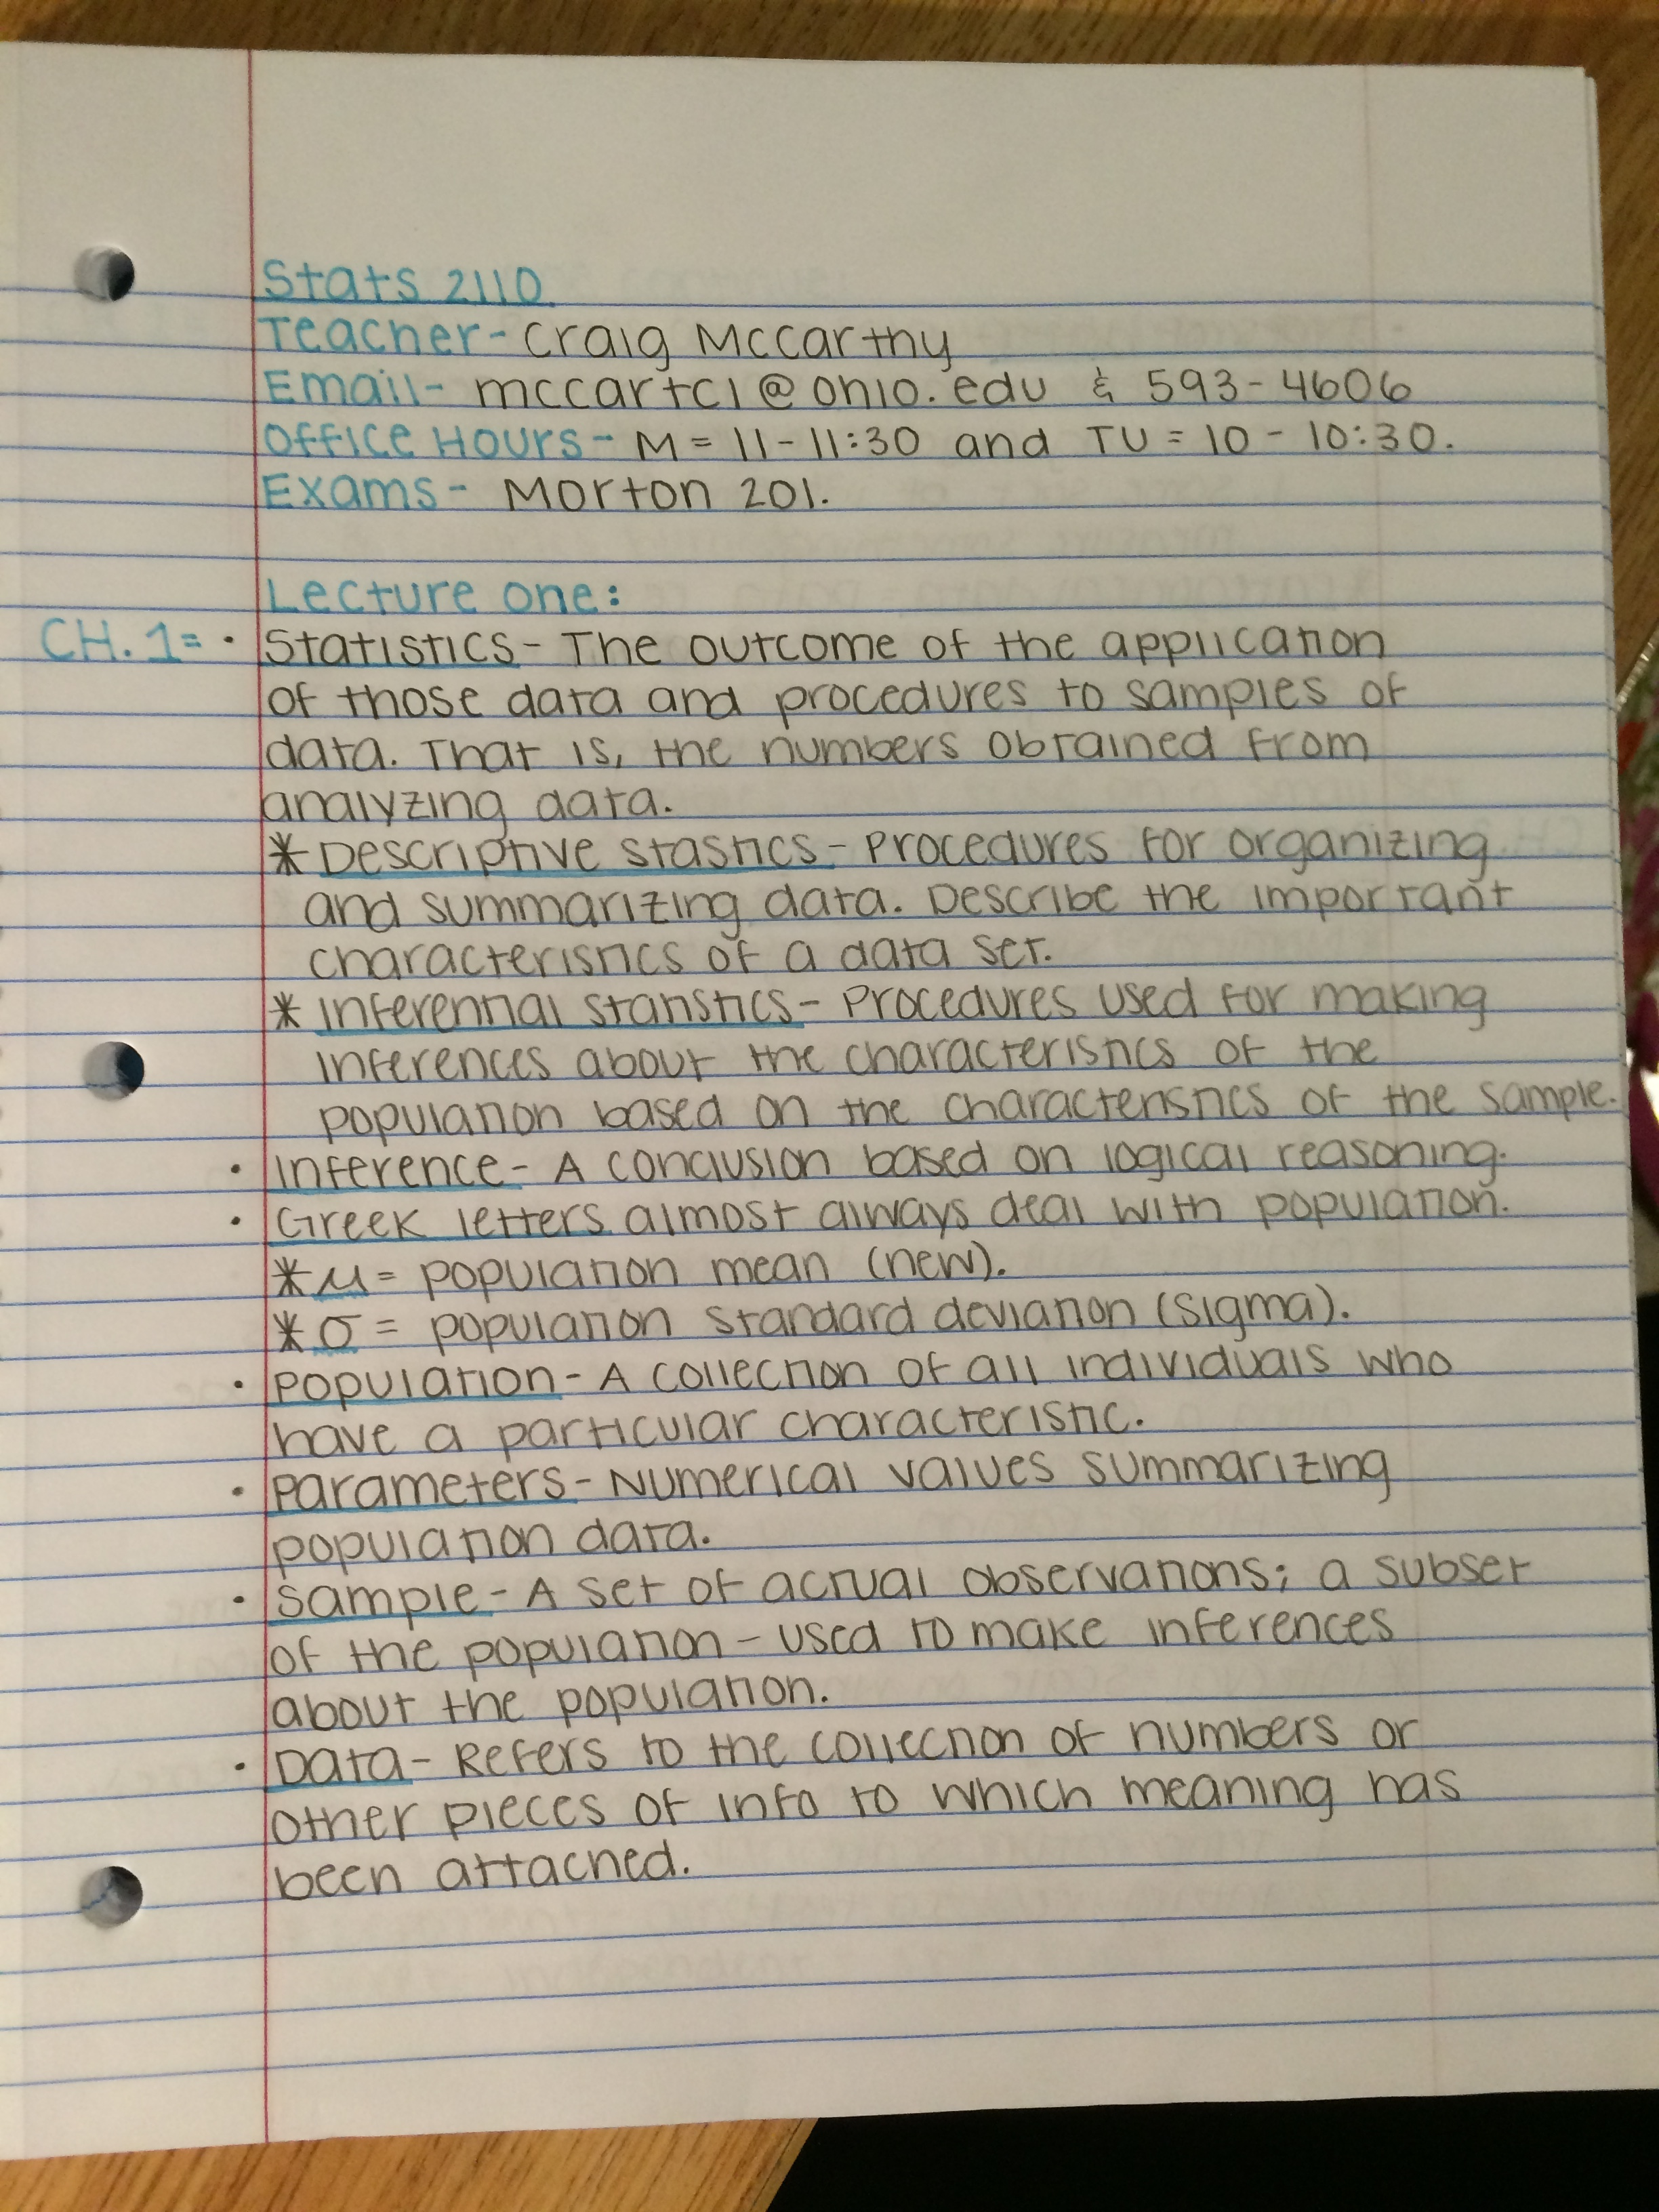 Stats 2110
Teacher- Craig McCarthy
Email- mccartc1@ohio.edu & 593-4606
Office Hours- M = 11-11:30 and TU = 10 - 10:30.
Exams- Morton 201.
Lecture one:
CH. 1= • Statistics- The outcome of the application
of those data and procedures to samples of
data. That is, the numbers obtained from
analyzing data.
* Descriptive stastics- Procedures for organizing
and summarizing data. Describe the important
characteristics of a data set.
* Inferential statistics- Procedures used for making
inferences about the characteristics of the
population based on the characteristics of the sample.
• Inference- A conclusion based on logical reasoning.
• Greek letters almost always deal with population.
* μ= population mean (new).
* σ = population standard deviation (sigma).
• Population- A collection of all individuals who
have a particular characteristic.
• Parameters- Numerical values summarizing
population data.
• Sample- A set of actual observations; a subset
of the population - used to make inferences
about the population.
• Data- Refers to the collection of numbers or
other pieces of info to which meaning has
been attached.